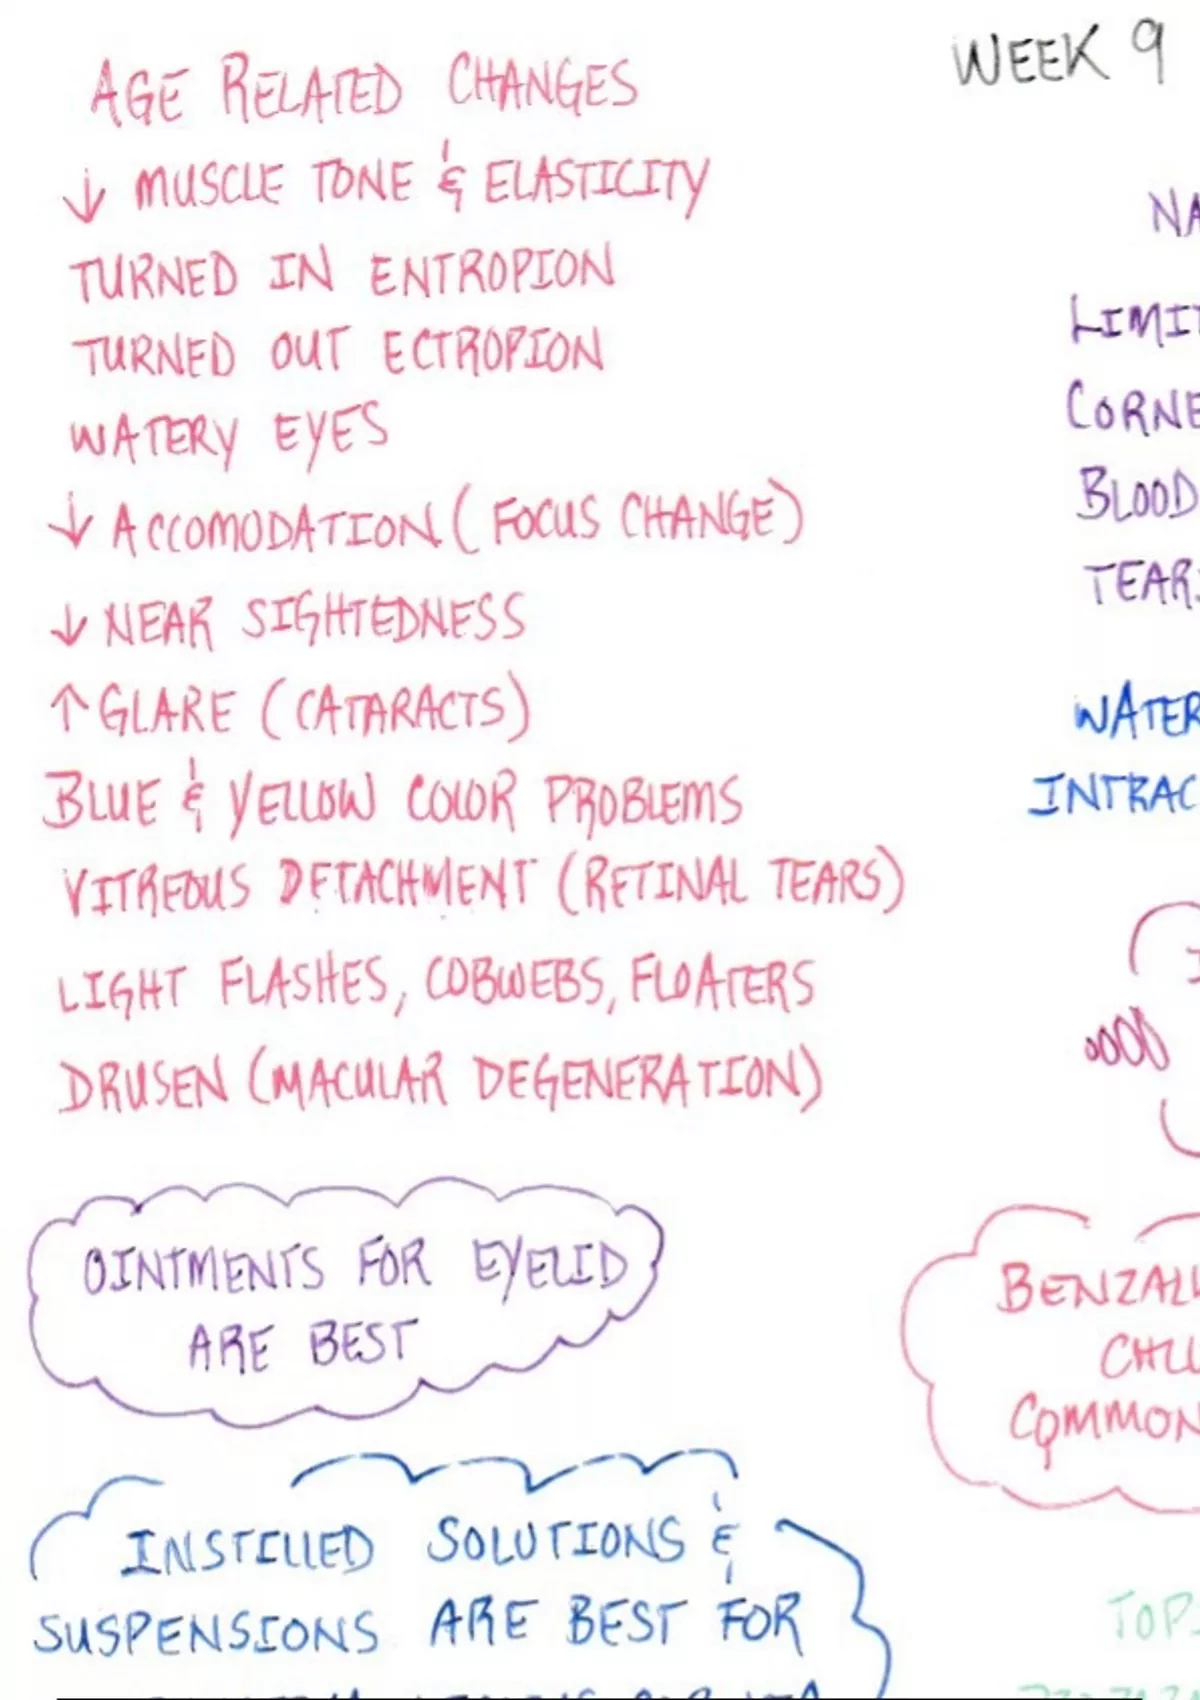 WEEK 9
AGE RELATED CHANGES
↓ MUSCLE TONE & ELASTICITY
TURNED IN ENTROPION
TURNED OUT ECTROPION
WATERY EYES
↓ ACCOMODATION (FOCUS CHANGE)
↓ NEAR SIGHTEDNESS
↑ GLARE (CATARACTS)
BLUE & YELLOW COLOR PROBLEMS
VITREOUS DETACHMENT (RETINAL TEARS)
LIGHT FLASHES, COBWEBS, FLOATERS
DRUSEN (MACULAR DEGENERATION)
OINTMENTS FOR EYELID
ARE BEST
INSTILLED SOLUTIONS &
SUSPENSIONS ARE BEST FOR
NA
LIMI
CORNE
BLOOD
TEAR
WATER
INTRAC
BENZAL
CHL
COMMON
TOP